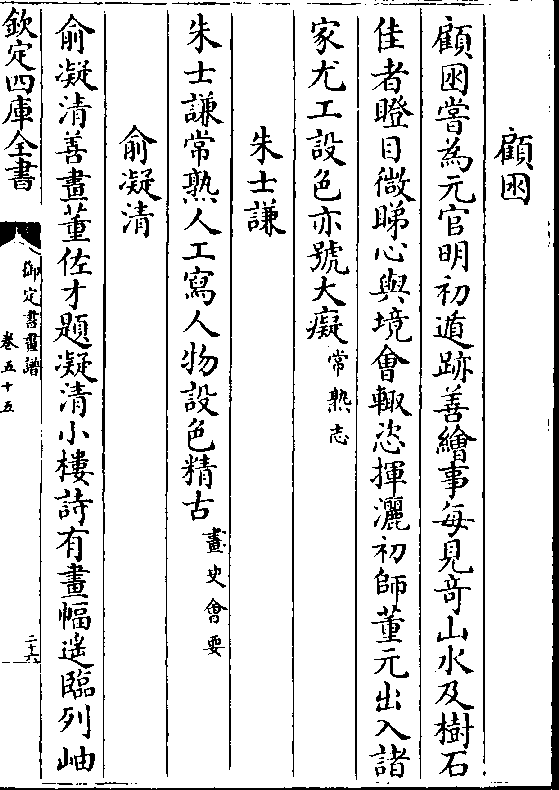 顧囦
顧囦嘗為元官明初遁跡善繪事每見竒山水及樹石
佳者瞪目微睇心與境會輙恣揮灑初師董元出入諸
家尤工設色亦號大癡常熟志
朱士謙
朱士謙常熟人工寫人物設色精古畫史會要
俞凝清
俞凝清善畫董佐才題凝清小樓詩有畫幅遙臨列岫
欽定四庫全書
御定書畫譜
卷五十五
二十六